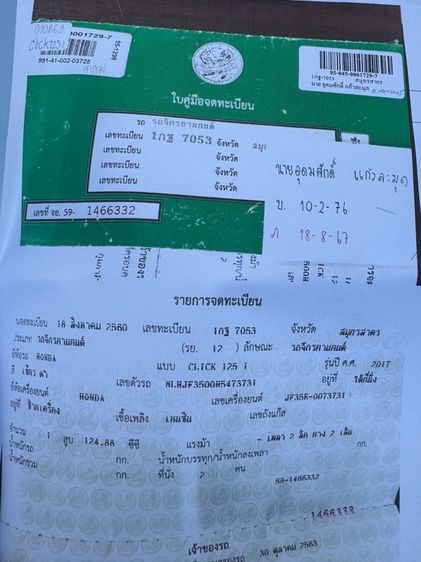 010669
CLICK125i
0001729-7
55-1298
991-41-002-03725
05-045-0001729-7
1กฐ-7053 สมุทรสาคร
นาย อุดมศักดิ์ แก้วละมุด
ใบคู่มือจดทะเบียน
รถ รถจักรยานยนต์
เลขทะเบียน 1กฐ 7053 จังหวัด สมุ
เลขทะเบียน จังหวัด
เลขทะเบียน จังหวัด
เลขทะเบียน จังหวัด
เลขที่ จย. 59- 1466332
นายอุดมศักดิ์ แก้วละมุด
บ. 10-2-76
ภ 18-8-67
รายการจดทะเบียน
วันจดทะเบียน 18 สิงหาคม 2560 เลขทะเบียน 1กฐ 7053 จังหวัด สมุทรสาคร
ประเภท รถจักรยานยนต์ (รย. 12 ) ลักษณะ รถจักรยานยนต์
ยี่ห้อรถ HONDA แบบ CLICK 125 i รุ่นปี ค.ศ. 2017
สี เขียว ดำ เลขตัวรถ อยู่ที่ ใต้ที่นั่ง
ยี่ห้อเครื่องยนต์ HONDA เลขเครื่องยนต์ JF35E-0073731
อยู่ที่ ข้างเครื่อง เชื้อเพลิง เบนซิน เลขถังแก๊ส
จำนวน 1 สูบ 124.88 ซีซี แรงม้า - เพลา 2 ล้อ ยาง 2 เส้น
น้ำหนักรถ กก. น้ำหนักบรรทุก/น้ำหนักลงเพลา กก.
น้ำหนักรวม กก. ที่นั่ง 2 คน
59-1466332
1466332
เจ้าของรถ
30 ตุลาคม 2563